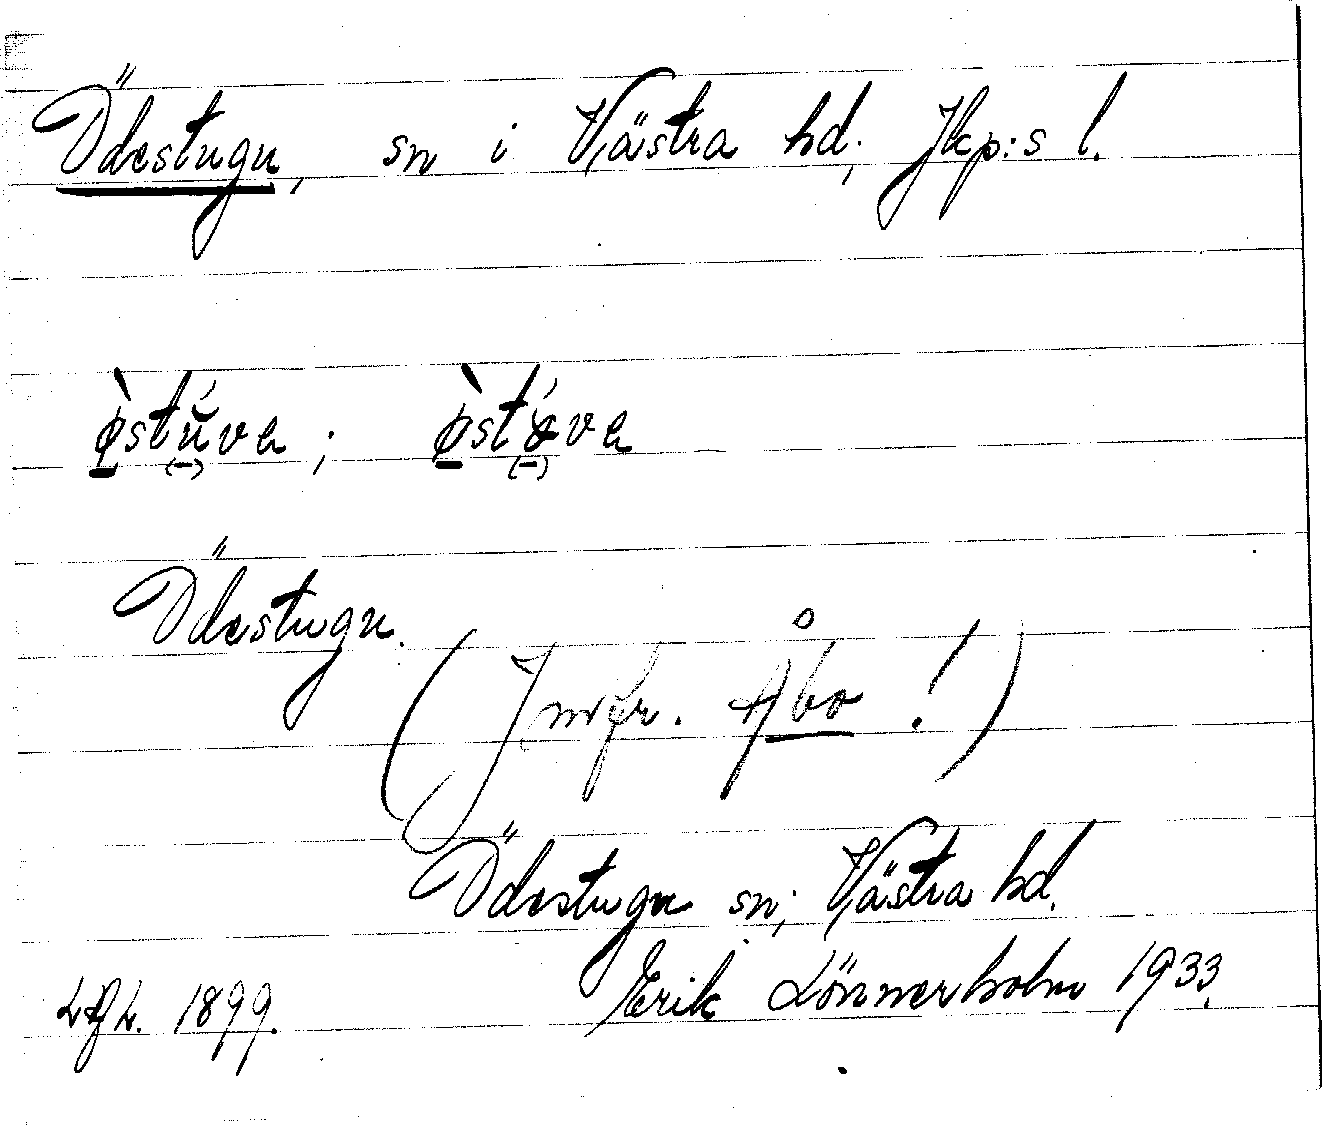 Ödestugu, sn i Västra hd, Jkp:s l.
Ödestugu.
(Jmfr. Åbo!)
Ödestugu sn; Västra hd.
Erik Lönnerholm 1933.
1899.